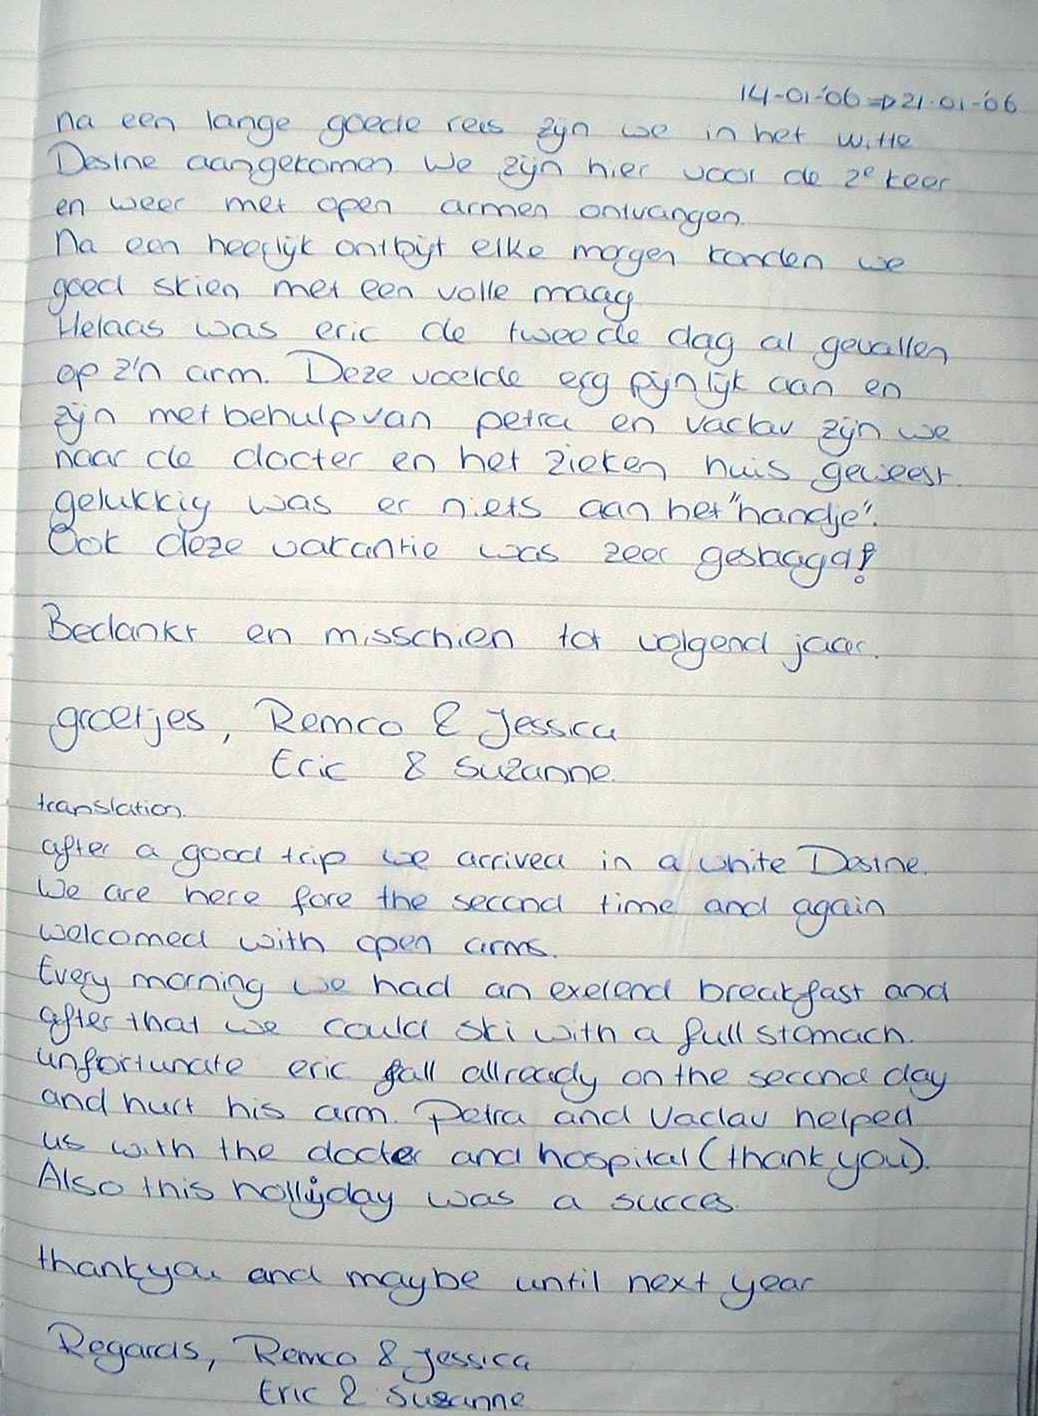 14-01-'06 => 21-01-'06
na een lange goede reis zijn we in het witte
Desine aangekomen. We zijn hier voor de 2e keer
en weer met open armen ontvangen.
Na een heerlijk ontbijt elke morgen konden we
goed skien met een volle maag
Helaas was eric de tweede dag al gevallen
op z'n arm. Deze voelde erg pijnlijk aan en
zijn met behulp van petra en vaclav zijn we
naar de docter en het zieken huis geweest.
gelukkig was er niets aan het "handje".
Ook deze vakantie was zeer geslaagd!
Bedankt en misschien tot volgend jaar.
groetjes, Remco & Jessica
Eric & Suzanne.
translation.
after a good trip we arrived in a white Desine.
We are here fore the second time and again
welcomed with open arms.
Every morning we had an exelend breakfast and
after that we could ski with a full stomach.
unfortunate eric fall allready on the second day
and hurt his arm. Petra and Vaclav helped
us with the docter and hospital (thank you).
Also this hollyday was a succes.
thankyou and maybe until next year
Regards, Remco & Jessica
Eric & Suzanne